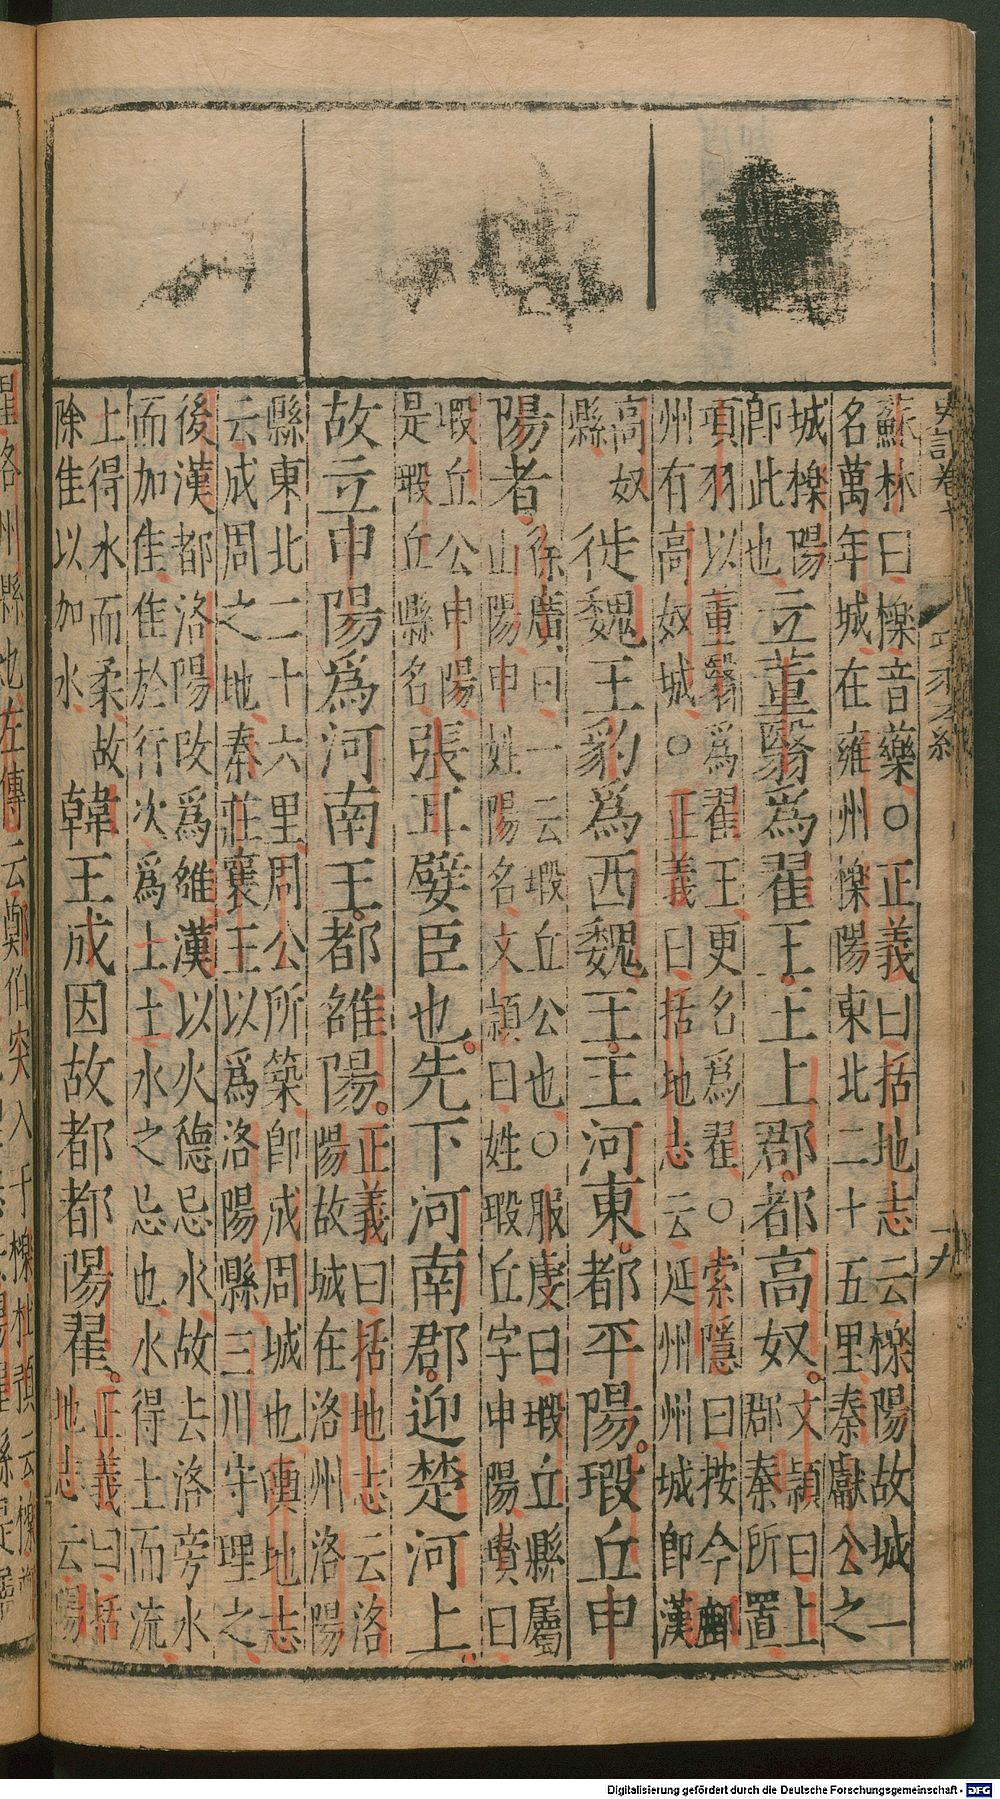 史記卷
十九
蘇林曰櫟音藥○正義曰括地志云櫟陽故城一
名萬年城在雍州櫟陽東北二十五里秦獻公之
城櫟陽
卽此也
立董翳爲翟王王上郡都高奴
文頴曰上
郡秦所置
項羽以董翳爲翟王更名爲翟○索隱曰按今鄜
州有高奴城○正義曰括地志云延州州城卽漢
高奴
縣
徙魏王豹爲西魏王王河東都平陽瑕丘申
陽者
徐廣曰一云瑕丘公也○服虔曰瑕丘縣屬
山陽申姓陽名文頴曰姓瑕丘字申陽瓉曰
瑕丘公申陽
是瑕丘縣名
張耳嬖臣也先下河南郡迎楚河上
故立申陽爲河南王都雒陽
正義曰括地志云洛
陽故城在洛州洛陽
縣東北二十六里周公所築卽成周城也輿地志
云成周之地秦莊襄王以爲洛陽縣三川守理之
後漢都洛陽改爲雒漢以火德忌水故去洛旁水
而加隹隹於行次爲土土水之忌也水得土而流
土得水而柔故
除隹以加水
韓王成因故都都陽翟
正義曰括
地志云陽
洛州縣也左傳云鄭伯突入于櫟杜預云櫟
Digitalisierung gefördert durch die Deutsche Forschungsgemeinschaft - DFG